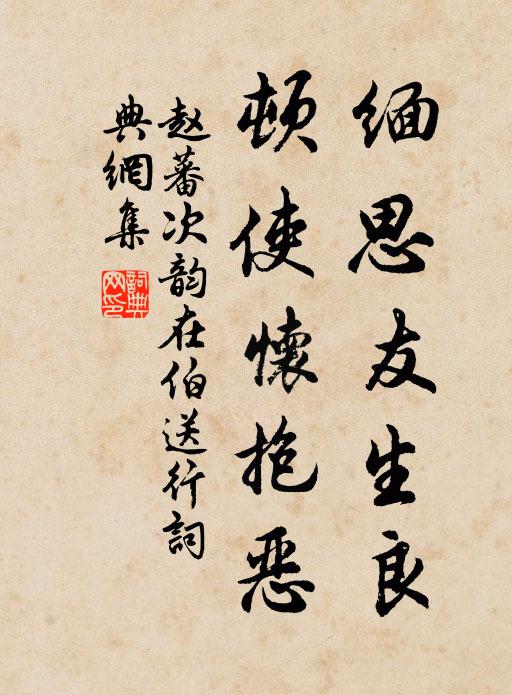 缅思友生良
顿使懷抱恶
赵蕃次韵在伯送行詞
典網集
詞典网印